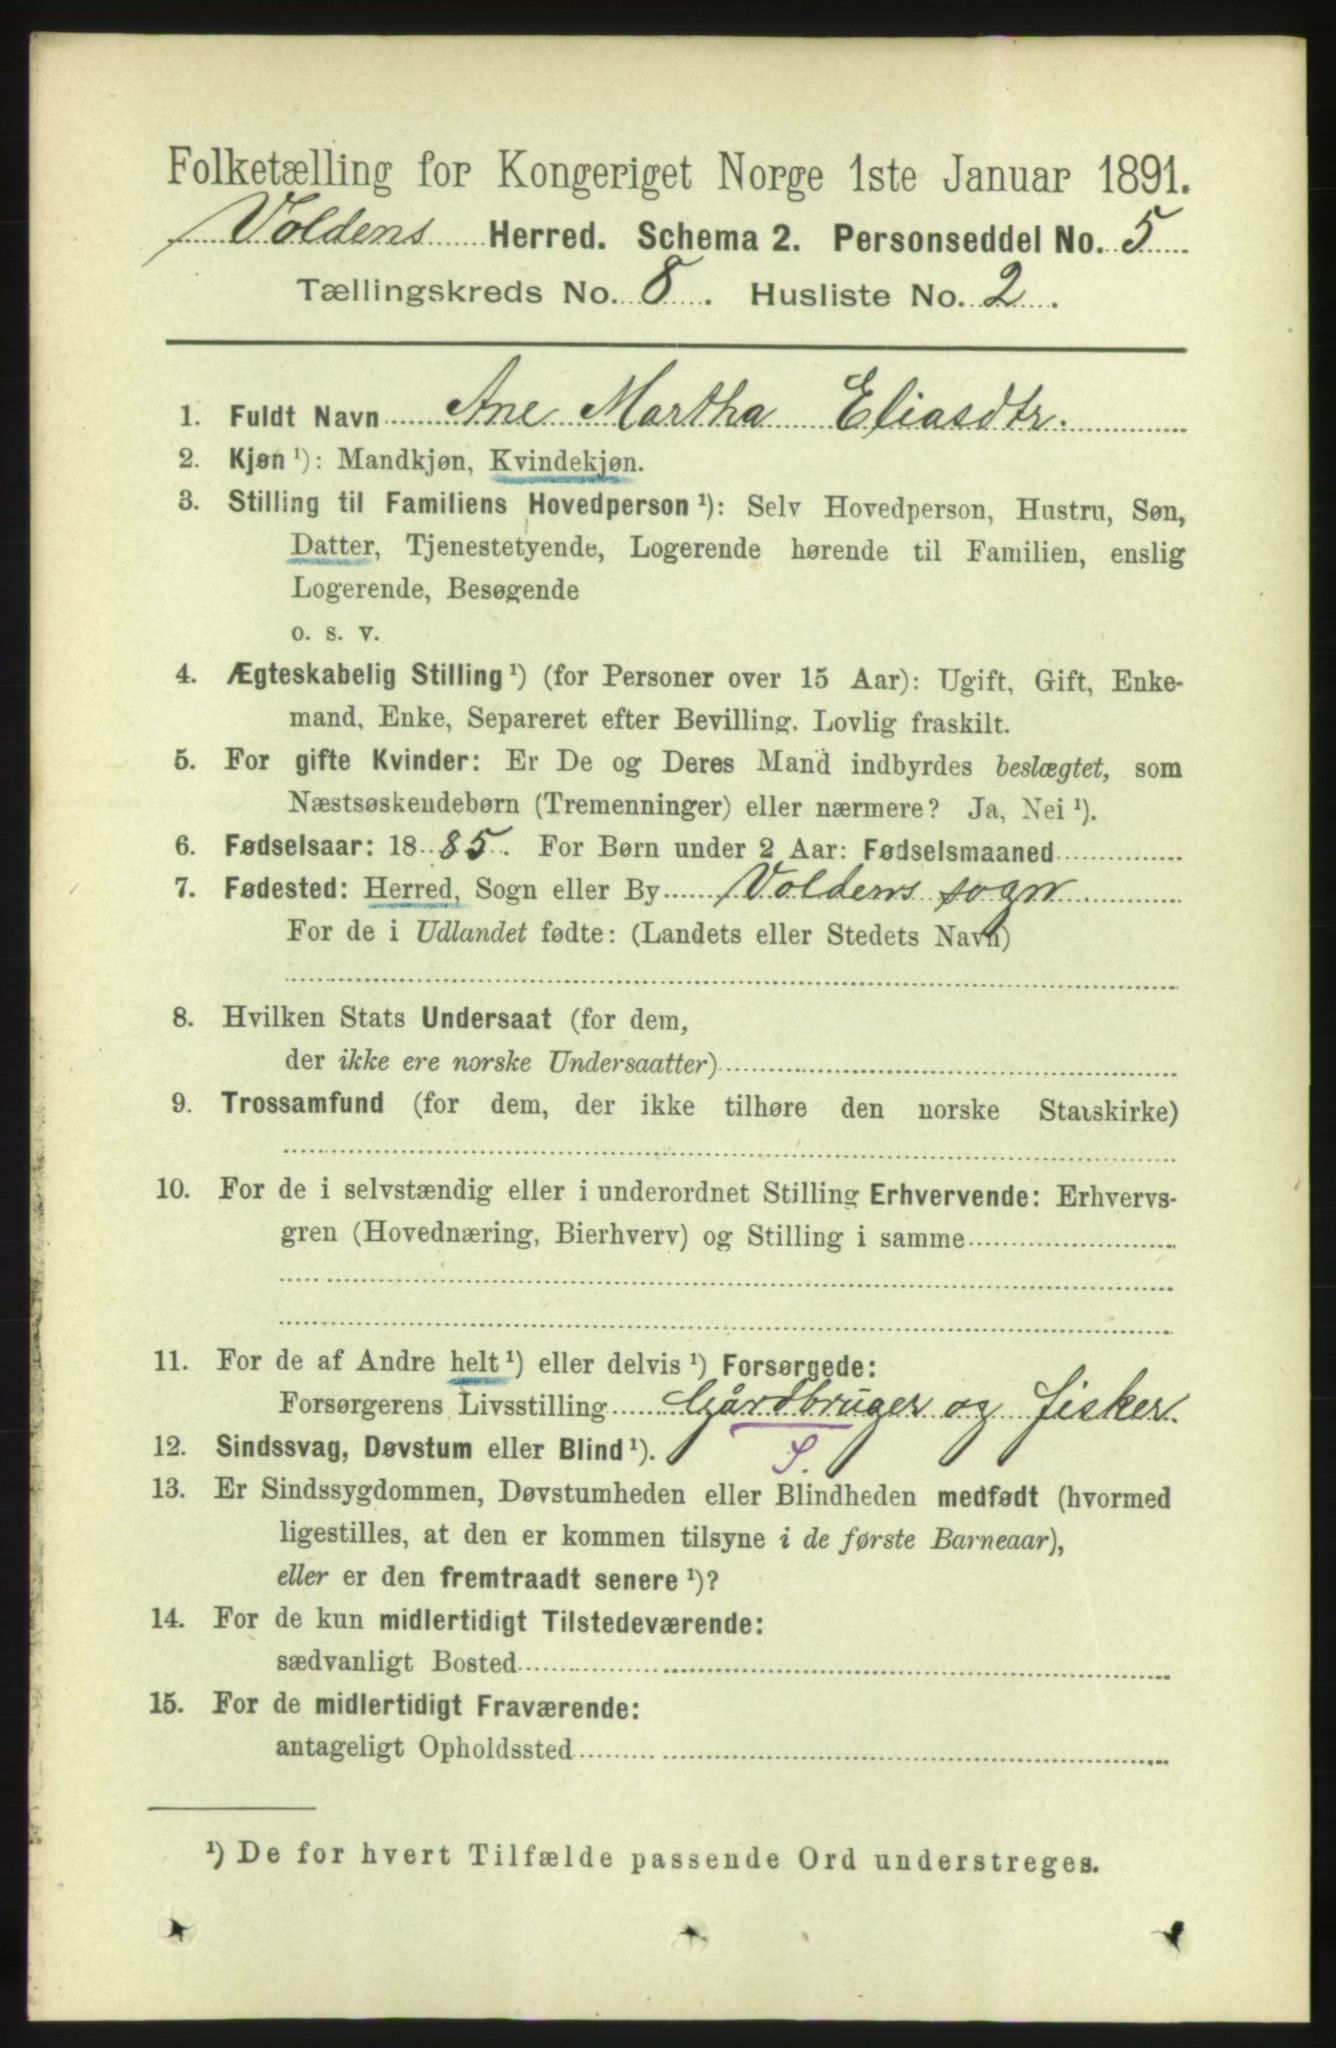 Folketælling for Kongeriget Norge 1ste Januar 1891.
Voldens Herred. Schema 2. Personseddel No. 5
Tællingskreds No. 8. Husliste No. 2.
1. Fuldt Navn Ane Martha Eliasdtr.
2. Kjøn ¹): Mandkjøn, Kvindekjøn.
3. Stilling til Familiens Hovedperson ¹): Selv Hovedperson, Hustru, Søn,
Datter, Tjenestetyende, Logerende hørende til Familien, enslig
Logerende, Besøgende
o. s. v.
4. Ægteskabelig Stilling ¹) (for Personer over 15 Aar): Ugift, Gift, Enke-
mand, Enke, Separeret efter Bevilling. Lovlig fraskilt.
5. For gifte Kvinder: Er De og Deres Mand indbyrdes beslægtet, som
Næstsøskendebørn (Tremenninger) eller nærmere? Ja, Nei ¹).
6. Fødselsaar: 1885. For Børn under 2 Aar: Fødselsmaaned
7. Fødested: Herred, Sogn eller By Voldens sogn
For de i Udlandet fødte: (Landets eller Stedets Navn)
8. Hvilken Stats Undersaat (for dem,
der ikke ere norske Undersaatter)
9. Trossamfund (for dem, der ikke tilhøre den norske Statskirke)
10. For de i selvstændig eller i underordnet Stilling Erhvervende: Erhvervs-
gren (Hovednæring, Bierhverv) og Stilling i samme
11. For de af Andre helt ¹) eller delvis ¹) Forsørgede:
Forsørgerens Livsstilling Gårdbruger og fisker.
S.
12. Sindssvag, Døvstum eller Blind ¹).
13. Er Sindssygdommen, Døvstumheden eller Blindheden medfødt (hvormed
ligestilles, at den er kommen tilsyne i de første Barneaar),
eller er den fremtraadt senere ¹)?
14. For de kun midlertidigt Tilstedeværende:
sædvanligt Bosted
15. For de midlertidigt Fraværende:
antageligt Opholdssted
¹) De for hvert Tilfælde passende Ord understreges.